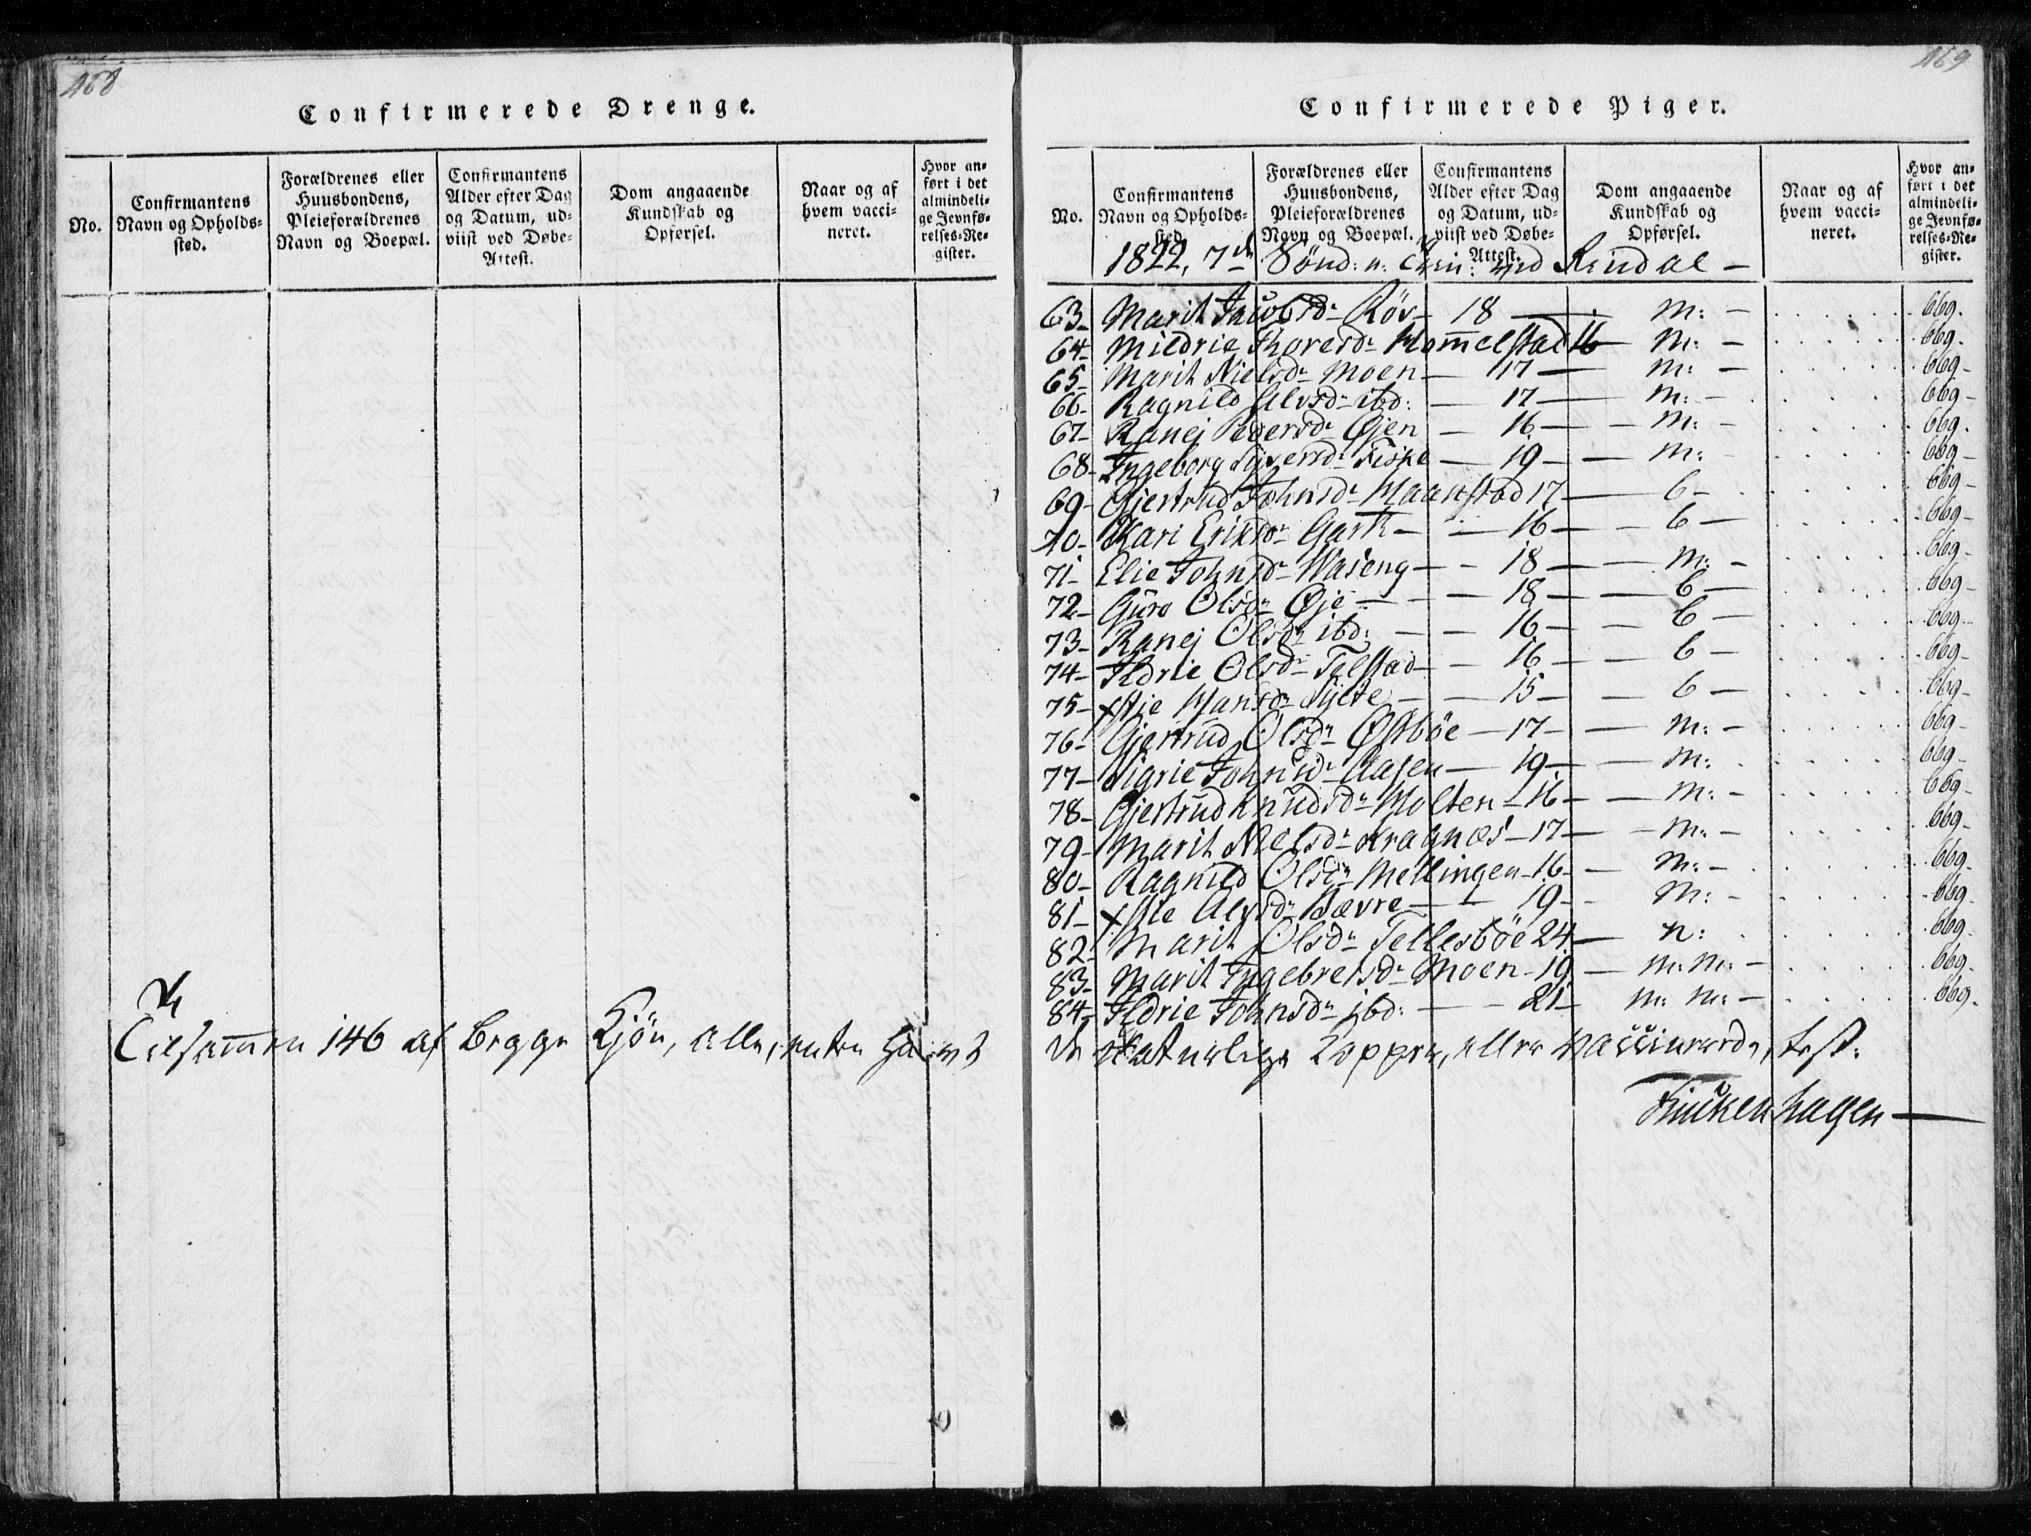 468
Confirmerede Drenge.
No.
Confirmantens Navn og Opholds-sted.
Forældrenes eller Huusbondens, Pleieforældrenes Navn og Boepæl.
Confirmantens Alder efter Dag og Datum, ud-viist ved Døbe-Attest.
Dom angaaende Kundskab og Opførsel.
Naar og af hvem vacci-neret.
Hvor an-ført i det almindeli-ge Jevnfø-relses-Re-gister.
Tilsammen 146 af begge Kjön, alle, uden
469
Confirmerede Piger.
No.
Confirmantens Navn og Opholds-sted.
Forældrenes eller Huusbondens, Pleieforældrenes Navn og Boepæl.
Confirmantens Alder efter Dag og Datum, ud-viist ved Døbe-Attest.
Dom angaaende Kundskab og Opførsel.
Naar og af hvem vacci-neret.
Hvor an-ført i det almindeli-ge Jevnfø-relses-Re-gister.
1822, 7de Sönd: n: Trin: ved Rindal -
63- Marit Jacobsdr Röv- 18 - m: - 669.
64- Mildrie Thoresdr Hommelstad 16 m: - 669.
65- Marit Nielsdr Moen - 17 - m: - 669-
66- Ragnild Alvsdr ibd: - 17 - m: - 669-
67- Ranej Pedersdr Øjen - 16 - m: - 669.
68- Ingeborg Siversdr Fiske - 19 - m: 669-
69- Gjertrud Johnsdr Maanstad 17 - 6- 669-
70- Kari Eriksdr Garte - 16 - 6 - 669-
71- Elie Johnsdr Waseng - 18 - m: - 669-
72- Guro Olsdr Øje - 18 - 6 - 669-
73- Ranej Olsdr ibd: - 16 - 6 - 669-
74- Ildrie Olsdr Telstad - 16 - 6 - 669-
75- + Hansdr - 15 - 6 - 669-
76- Gjertrud Olsdr Østböe - 17 - m: - 669-
77- Sigrie Johnsdr Aasen - 19 - m: 669-
78- Gjertrud Knudsdr Holten - 16 - m: - 669-
79- Marit Nielsdr Kragnæs - 17 - m: - 669-
80- Ragnild Olsdr Mellingen - 16 - m: - 669-
81- + Alvsdr Bævre - 19 - m: - 669-
82- Marit Olsdr Tellesböe 24 - n: 669-
83- Marit Ingebretsdr Moen - 19 - m: m: - 669-
84- Ildrie Johnsdr ibd: - 21 - m: m: - 669.
naturlige Kopper, ellers vaccinerede, test:
Finckenhagen -